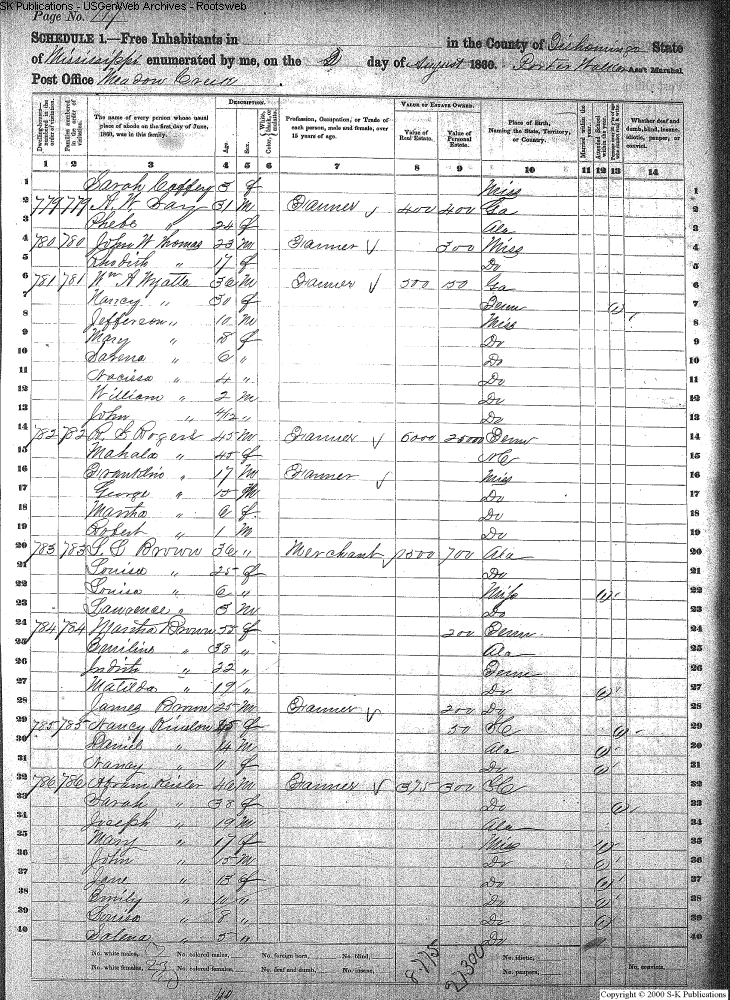 SK Publications - USGenWeb Archives - Rootsweb
Page No.
SCHEDULE 1.—Free Inhabitants in in the County of Tishomingo State
of Mississippi enumerated by me, on the 2 day of August 1860. Porter Walker Ass't Marshal
Post Office Meadow Creek
DESCRIPTION. VALUE OF ESTATE OWNED.
Dwelling-houses—numbered in the order of visitation. Families numbered in the order of visitation. The name of every person whose usual place of abode on the first day of June, 1860, was in this family. Age. Sex. Color, White, black, or mulatto. Profession, Occupation, or Trade of each person, male and female, over 15 years of age. Value of Real Estate. Value of Personal Estate. Place of Birth, Naming the State, Territory, or Country. Married within the year. Attended School within the year. Whether deaf and dumb, blind, insane, idiotic, pauper, or convict.
1 2 3 4 5 6 7 8 9 10 11 12 13 14
1 Sarah Caffey 3 f Miss 1
2 779 779 A. W. 31 m Farmer 400 400 Ga 2
3 Phebe " 24 f Ala 3
4 780 780 John W Thomas 23 m Farmer 300 Miss 4
5 " 17 f Do 5
6 781 781 Wm A Wyatt 36 m Farmer 500 50 Ga 6
7 Nancy " 30 f Tenn 1 7
8 Jefferson " 10 m Miss 8
9 Mary " 8 f Do 9
10 " 6 " Do 10
11 Nacissa " 4 " Do 11
12 William " 2 m Do 12
13 John " 4/12 " Do 13
14 782 782 Rogers 45 m Farmer 6000 25000 Tenn 14
15 Mahala " 45 f NC 15
16 Franklin " 17 m Farmer Miss 16
17 George " 15 m Do 17
18 Martha " 6 f Do 18
19 Robert " 1 m Do 19
20 783 783 Brown 36 " Merchant 1500 700 Ala 20
21 Louisa " 25 f Do 21
22 Louisa " 6 " Miss 1 22
23 Lawrence " 3 m Do 23
24 784 784 Martha Brown 55 f 200 Tenn 24
25 Emiline " 38 " Ala 25
26 Judith " 22 " Tenn 26
27 Matilda " 19 " Do 1 27
28 James Brown 25 m Farmer 200 Do 28
29 785 785 Nancy 45 f 50 SC 1 29
30 Daniel " 14 m Ala 1 30
31 Nancy " 11 f Do 1 31
32 786 786 Abram 46 m Farmer 375 300 SC 32
33 Sarah " 38 f Do 1 33
34 Joseph " 19 m Ala 34
35 Mary " 17 f Miss 1 35
36 John " 15 m Do 1 36
37 Jane " 13 f Do 1 37
38 Emily " 10 " Do 1 38
39 Louisa " 8 " Do 1 39
40 Salena " 5 " Do 40
No. white males, No. colored males, No. foreign born, No. blind, No. idiotic, No. convicts,
No. white females, No. colored females, No. deaf and dumb, No. insane, No. paupers,
Copyright © 2000 S-K Publications